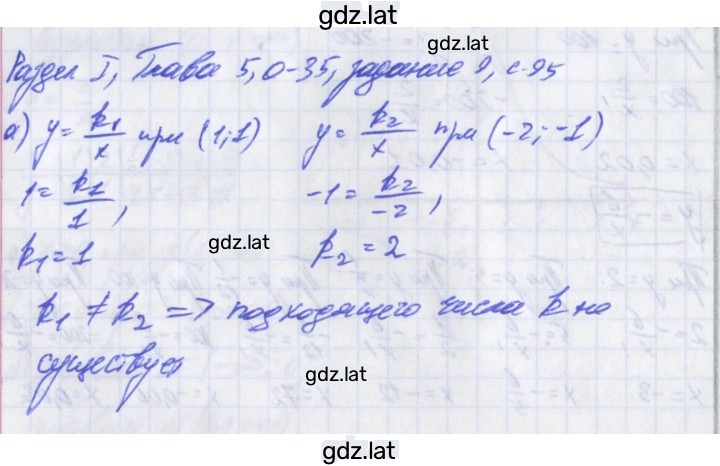 gdz.lat
Раздел I, Глава 5, О-35, задание 9, с.95
а) y = k₁/x при (1; 1) y = k₂/x при (-2; -1)
1 = k₁/1, -1 = k₂/-2,
k₁ = 1 gdz.lat k₂ = 2
k₁ ≠ k₂ => подходящего числа k не
существует
gdz.lat
gdz.lat